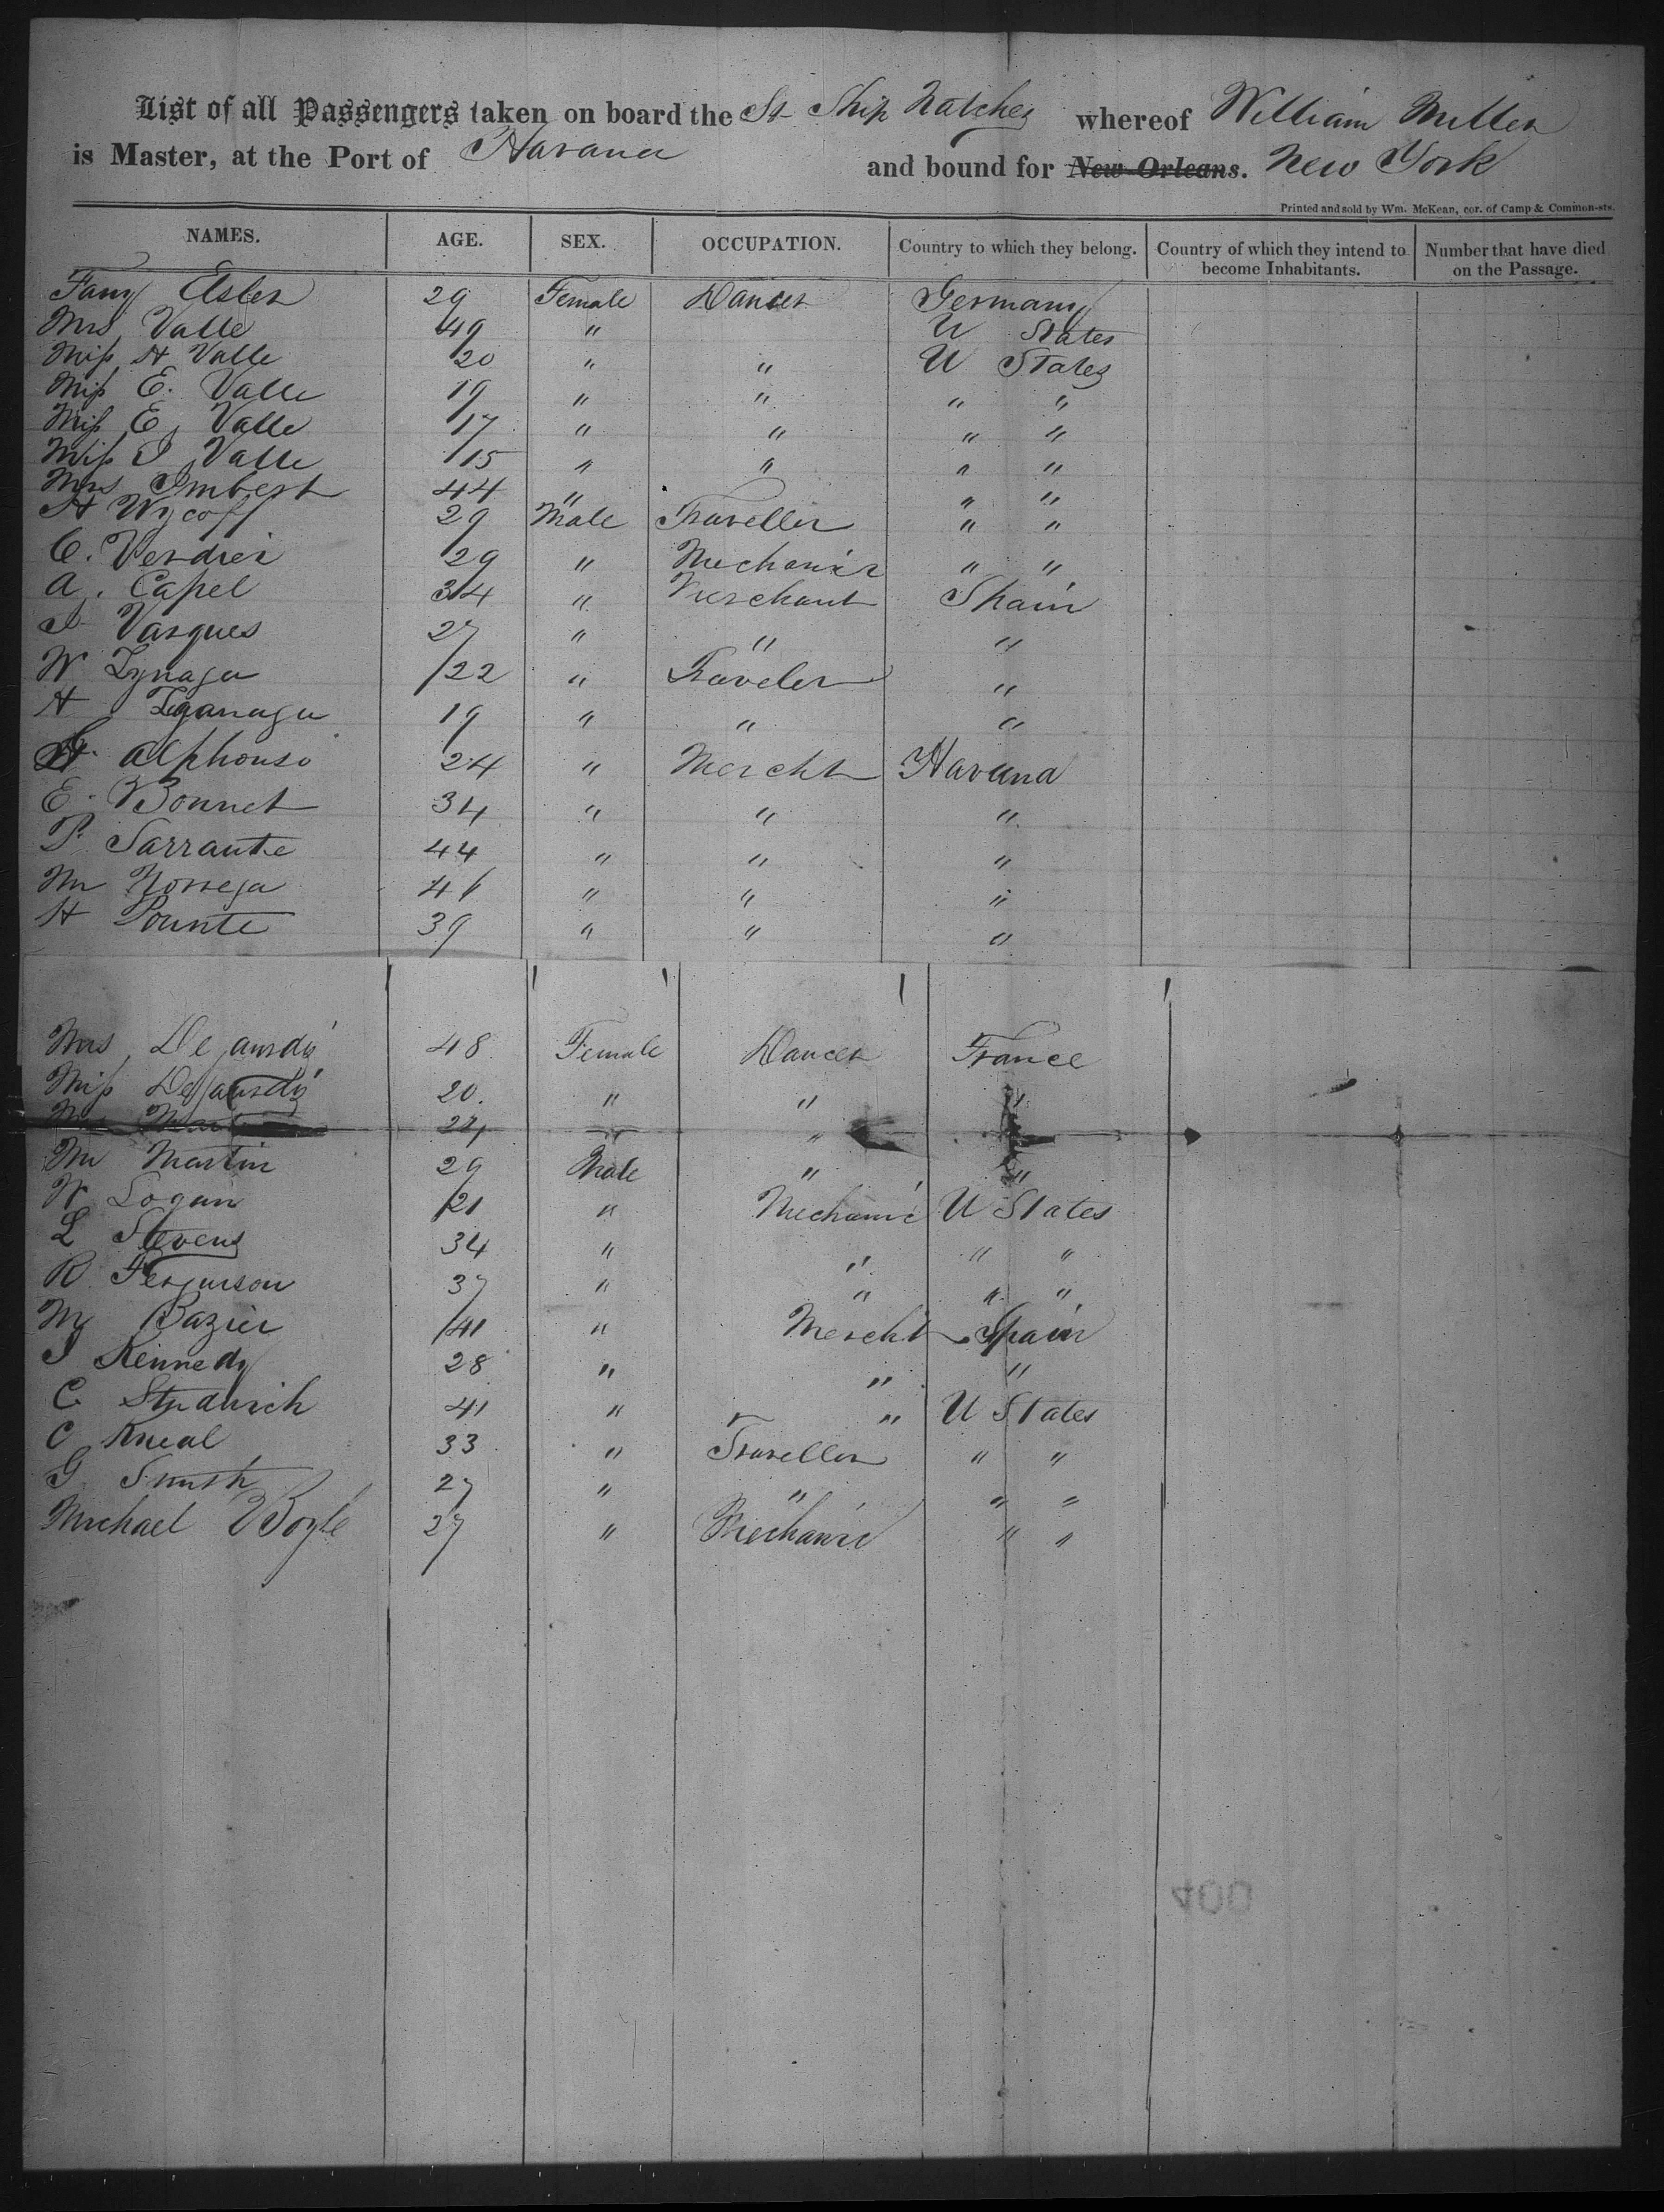 List of all Passengers taken on board the St Ship Natchez whereof William Miller
is Master, at the Port of Havana and bound for New-Orleans. New York
Printed and sold by Wm. McKean, cor. of Camp & Common-sts.
NAMES. AGE. SEX. OCCUPATION. Country to which they belong. Country of which they intend to become Inhabitants. Number that have died on the Passage.
Fany Elsler 29 Female Dancer Germany
Mrs Valle 49 " U States
Miss A Valle 20 " " U States
Miss E. Valle 19 " " " "
Miss E Valle 17 " " " "
Miss J Valle 15 " " " "
Mrs Imbert 44 " " "
H Wycoff 29 Male Traveller " "
C. Verdier 29 " Mechanic " "
A. Capel 34 " Merchant Spain
J Vasques 27 " " "
W 22 " Traveler "
A 19 " " "
Alphonso 24 " Mercht Havana
E. Bonnet 34 " " "
P. Sarraute 44 " " "
Mr Norrega 41 " " "
H Pounte 39 " " "
Mrs 48 Female Dancer France
Miss 20. " " "
" "
Mr Martin 29 Male " "
W Logan 21 " Mechanic U States
L Stevens 34 " " " "
R Fergurson 37 " " " "
M Bazier 41 " Mercht Spain
J Kennedy 28 " " "
C 41 " " U States
C Kneal 33 " Traveller " "
G Smith 27 " " " "
Michael Boyle 27 " Mechanic " "
400